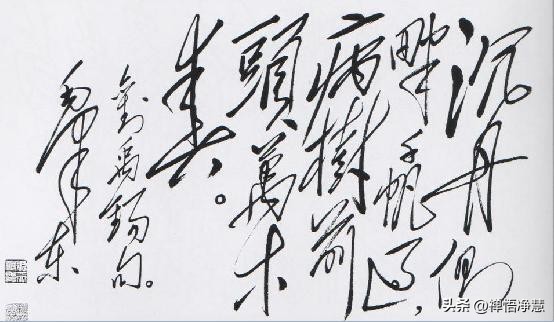 沉舟侧
畔千帆过，
病樹前
頭萬木
春。
劉禹錫句。
毛泽东
头条 @禅悟净慧